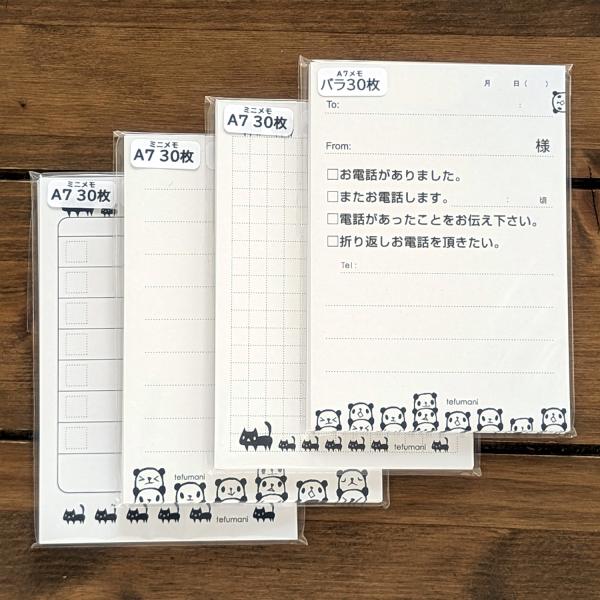 A7メモ
バラ30枚
月 日( )
To: :
From: 様
□お電話がありました。
□またお電話します。 : 頃
□電話があったことをお伝え下さい。
□折り返しお電話を頂きたい。
Tel:
tefumani
ミニメモ
A7 30枚
tefumani
ミニメモ
A7 30枚
tefumani
ミニメモ
A7 30枚
tefumani